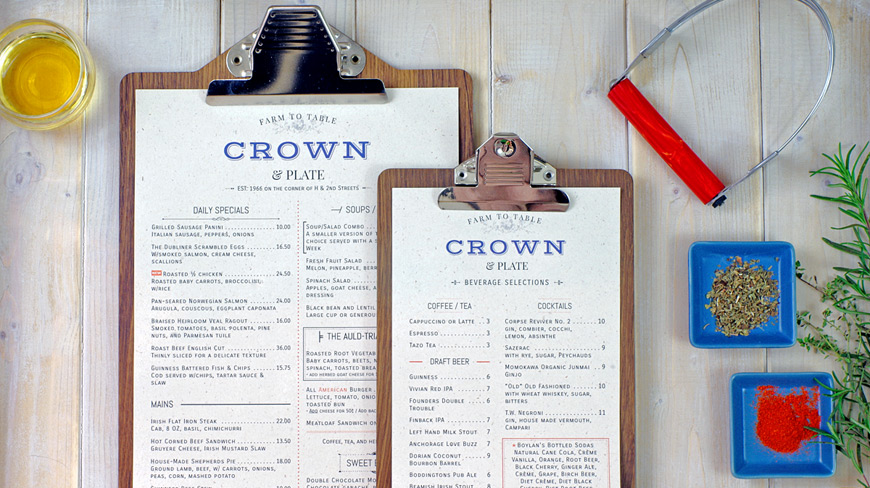 FARM TO TABLE
CROWN
& PLATE
EST: 1966 ON THE CORNER OF H & 2ND STREETS
DAILY SPECIALS
GRILLED SAUSAGE PANINI 10.00
ITALIAN SAUSAGE, PEPPERS, ONIONS
THE DUBLINER SCRAMBLED EGGS 16.50
W/SMOKED SALMON, CREAM CHEESE,
SCALLIONS
ROASTED ½ CHICKEN 24.50
ROASTED BABY CARROTS, BROCCOLINI,
W/RICE
PAN-SEARED NORWEGIAN SALMON 24.00
ARUGULA, COUSCOUS, EGGPLANT CAPONATA
BRAISED HEIRLOOM VEAL RAGOUT 16.00
SMOKED TOMATOES, BASIL POLENTA, PINE
NUTS, AND PARMESAN TUILE
ROAST BEEF ENGLISH CUT 36.00
THINLY SLICED FOR A DELICATE TEXTURE
GUINNESS BATTERED FISH & CHIPS 15.75
COD SERVED W/CHIPS, TARTAR SAUCE &
SLAW
MAINS
IRISH FLAT IRON STEAK 22.00
CAB, 8 OZ, BASIL, CHIMICHURRI
HOT CORNED BEEF SANDWICH 13.50
GRUYERE CHEESE, IRISH MUSTARD SLAW
HOUSE-MADE SHEPHERDS PIE 18.00
GROUND LAMB, BEEF, W/ CARROTS, ONIONS,
PEAS, CORN, MASHED POTATO
SOUPS /
SOUP/SALAD COMBO
A SMALLER VERSION OF
CHOICE SERVED WITH A
WEEK
FRESH FRUIT SALAD
MELON, PINEAPPLE,
SPINACH SALAD
APPLES, GOAT CHEESE,
DRESSING
BLACK BEAN AND
LARGE CUP OR
THE
ROASTED ROOT
BABY CARROTS, BEETS,
SPINACH, TOASTED
+ ADD HERBED GOAT CHEESE FOR
ALL AMERICAN BURGER
LETTUCE, TOMATO,
TOASTED BUN
+ ADD CHEESE FOR 50¢ / ADD
MEATLOAF SANDWICH
COFFEE, TEA, AND
SWEET
DOUBLE CHOCOLATE
FARM TO TABLE
CROWN
& PLATE
BEVERAGE SELECTIONS
COFFEE / TEA
CAPPUCCINO OR LATTE 3
ESPRESSO 3
TAZO TEA 3
DRAFT BEER
GUINNESS 6
VIVIAN RED IPA 7
FOUNDERS DOUBLE 6
TROUBLE
FINBACK IPA 7
LEFT HAND MILK STOUT 7
ANCHORAGE LOVE BUZZ 7
DORIAN COCONUT 9
BOURBON BARREL
BODDINGTONS PUB ALE 6
BEAMISH IRISH STOUT
COCKTAILS
CORPSE REVIVER NO. 2 10
GIN, COMBIER, COCCHI,
LEMON, ABSINTHE
SAZERAC 9
WITH RYE, SUGAR, PEYCHAUDS
MOMOKAWA ORGANIC JUNMAI 9
GINJO
"OLD" OLD FASHIONED 10
WITH WHEAT WHISKEY, SUGAR,
BITTERS
T.W. NEGRONI 11
GIN, HOUSE MADE VERMOUTH,
CAMPARI
+ BOYLAN'S BOTTLED SODAS
NATURAL CANE COLA, CRÈME
VANILLA, ORANGE, ROOT BEER,
BLACK CHERRY, GINGER ALE,
CRÈME, GRAPE, BIRCH BEER,
DIET CRÈME, DIET BLACK